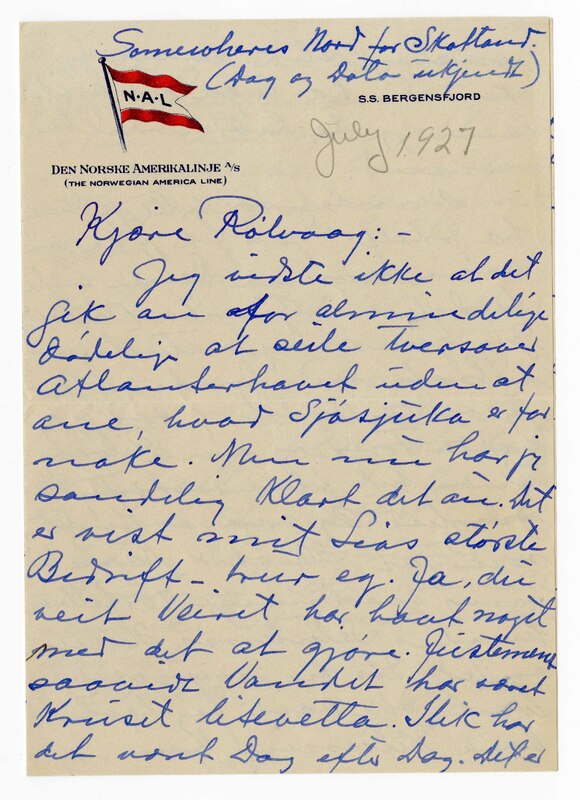 Somewheres Nord for Skotland.
(Dag og Dato ukjendt)
N·A·L
S.S. BERGENSFJORD
July 1927
DEN NORSKE AMERIKALINJE A/S
(THE NORWEGIAN AMERICA LINE)
Kjære Rölvaag: -
Jeg vidste ikke at det
gik an for almindelige
dödelige at seile tversover
Atlanterhavet uden at
ane, hvad Sjösjuka er for
noke. Men nu har jeg
sandelig Klart det au. Det
er vist mit Livs störste
Bedrift - trur eg. Ja, du
veit Veiret har havt noget
med det at gjöre. Justemens
saavidt Vandet har været
Kruset litevetta. Slik har
det været Dag efter Dag. Det er